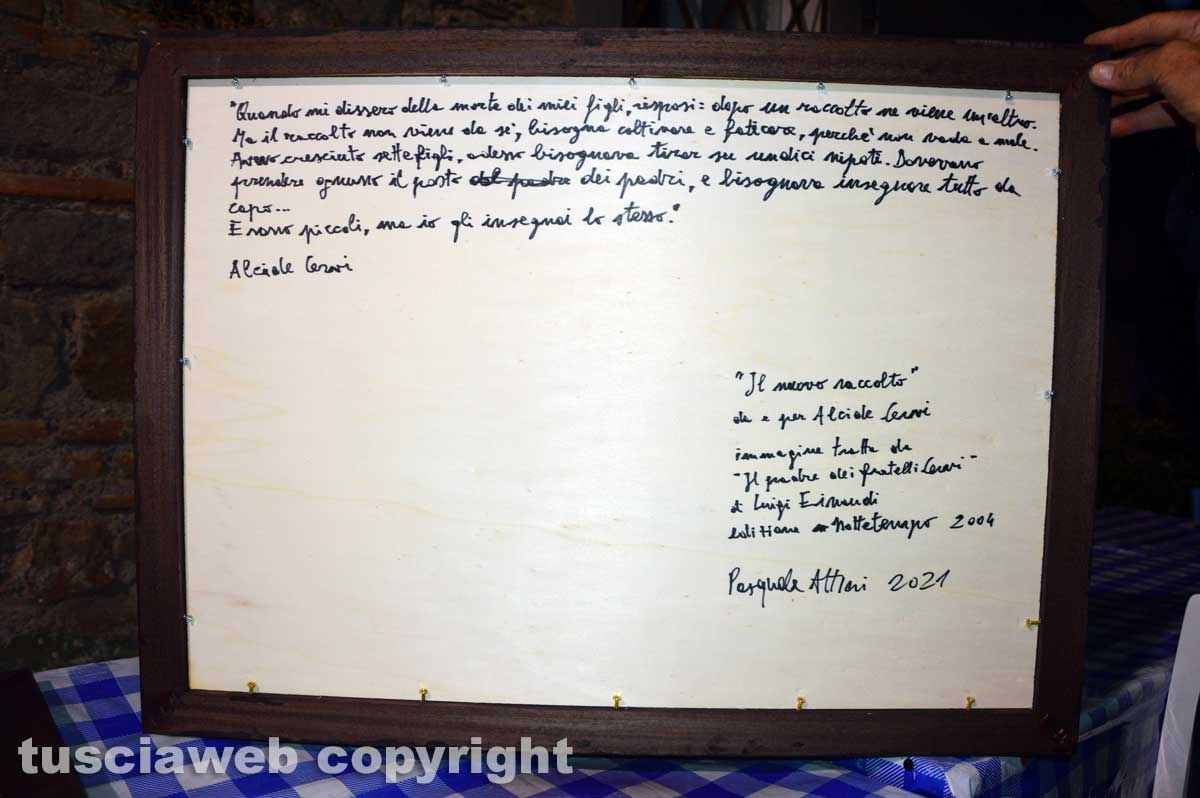 "Quando mi dissero della morte dei miei figli, risposi: dopo un raccolto ne viene un'altro.
Ma il raccolto non viene da sé, bisogna coltivare e faticare, perché non vada a male.
Avevo cresciuto sette figli, adesso bisognava tirar su undici nipoti. Dovevano
prendere ognuno il posto del padre dei padri, e bisognava insegnare tutto da
capo...
Erano piccoli, ma io gli insegnai lo stesso."
Alcide Cervi
"Il nuovo raccolto"
da e per Alcide Cervi
immagine tratta da
"Il padre dei fratelli Cervi"
di Luigi Einaudi
edizione Nottetempo 2004
Pasquale Altieri 2021
tusciaweb copyright